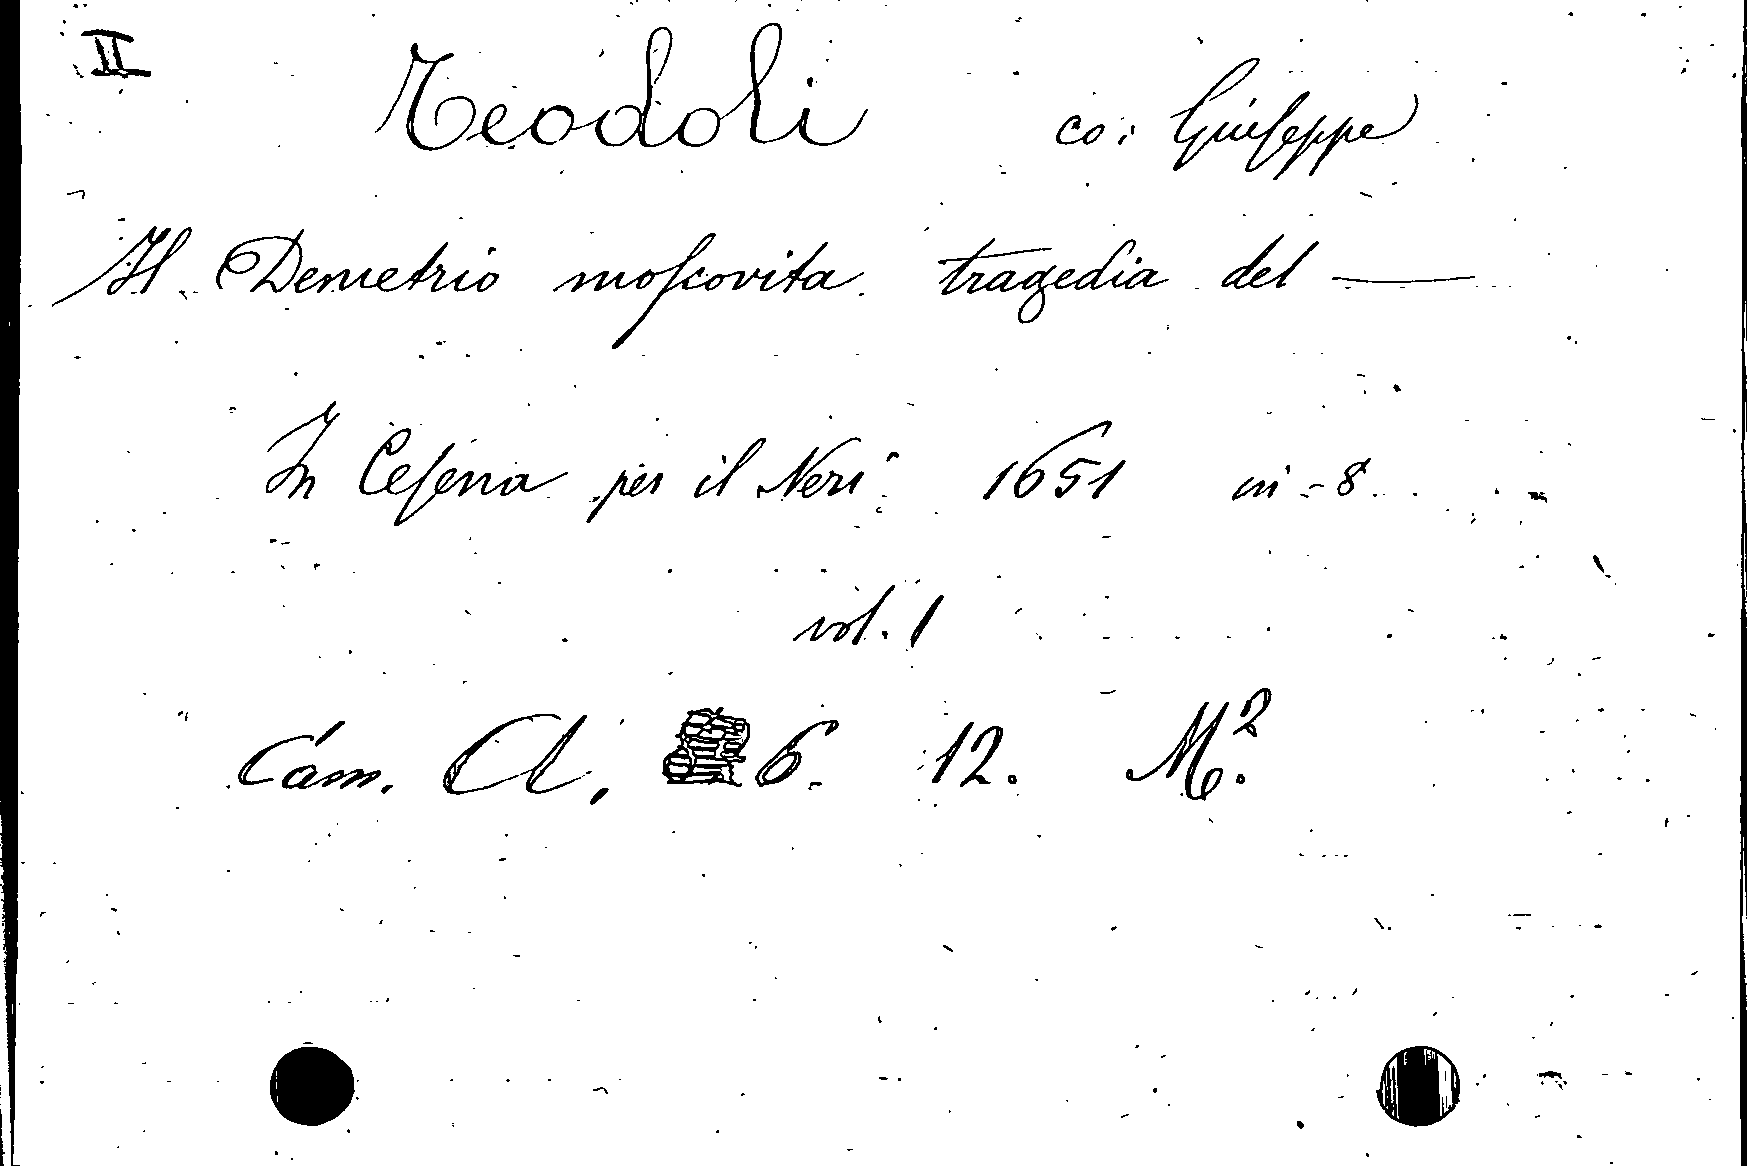 II
Teodoli co: Giuseppe
Il Demetrio moscovita tragedia del —
In Cesena per il Neri 1651 in-8
vol. 1
Cam. A. 6. 12. M².